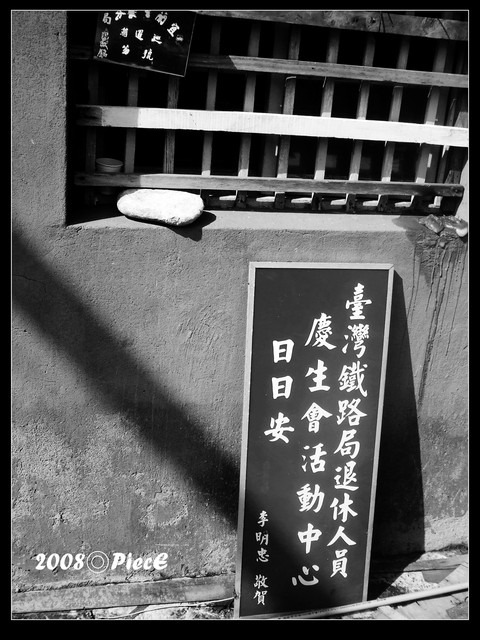 臺灣鐵路局退休人員
慶生會活動中心
日日安
李明忠 敬賀
2008◎PiecE